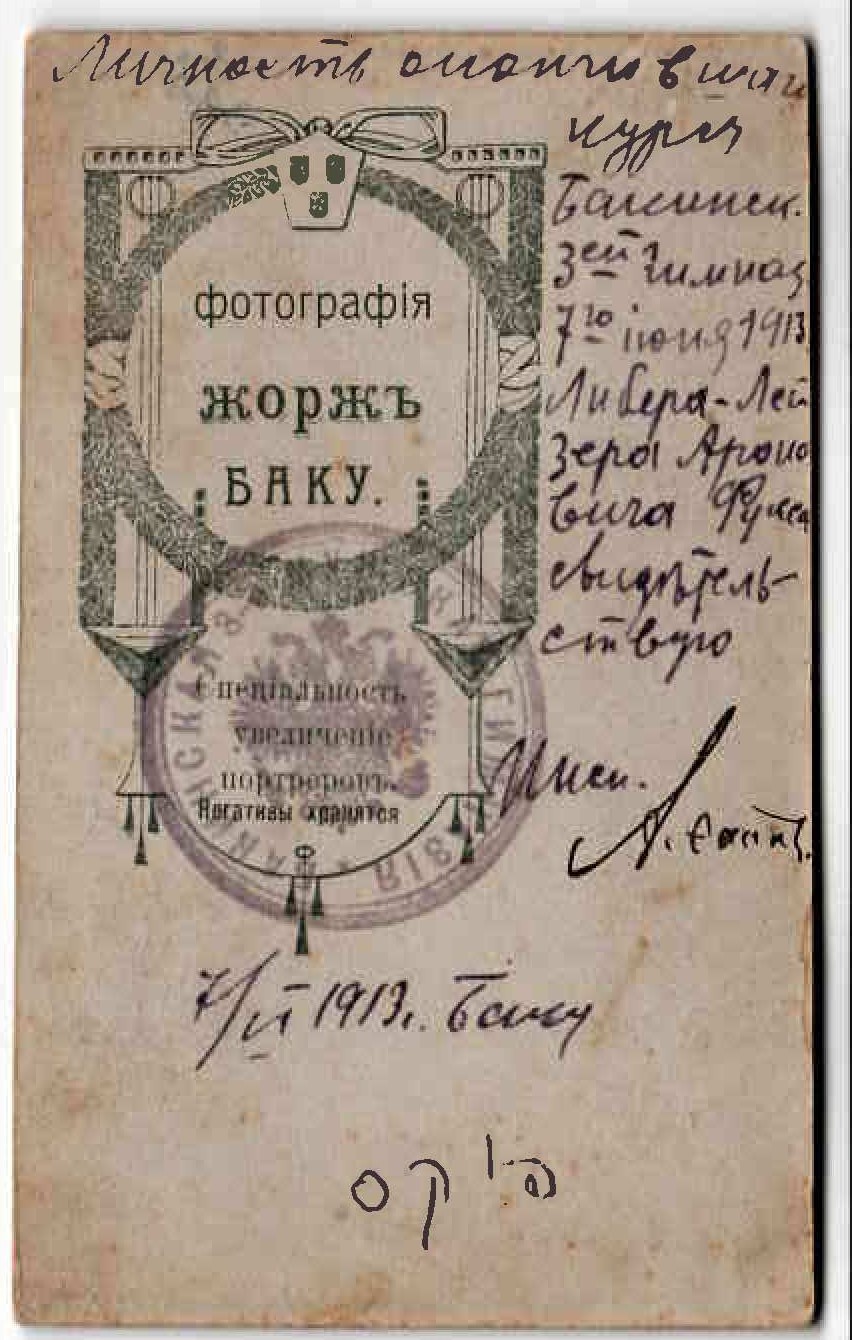 Личность окончившаг
курса
Бакинск.
3ей гимназ
7го июня 1913
Либера-Лей
зера Ароно
вича Фукса
свидѣтель-
ствую
фотографія
ЖОРЖЪ
БАКУ.
Спеціальность
увеличеніе
портреровъ.
Негативы хранятся
БАКИНСКАЯ 3 ГИМНАЗІЯ
Инсп.
7/VI 1913 г. Баку
פוקס